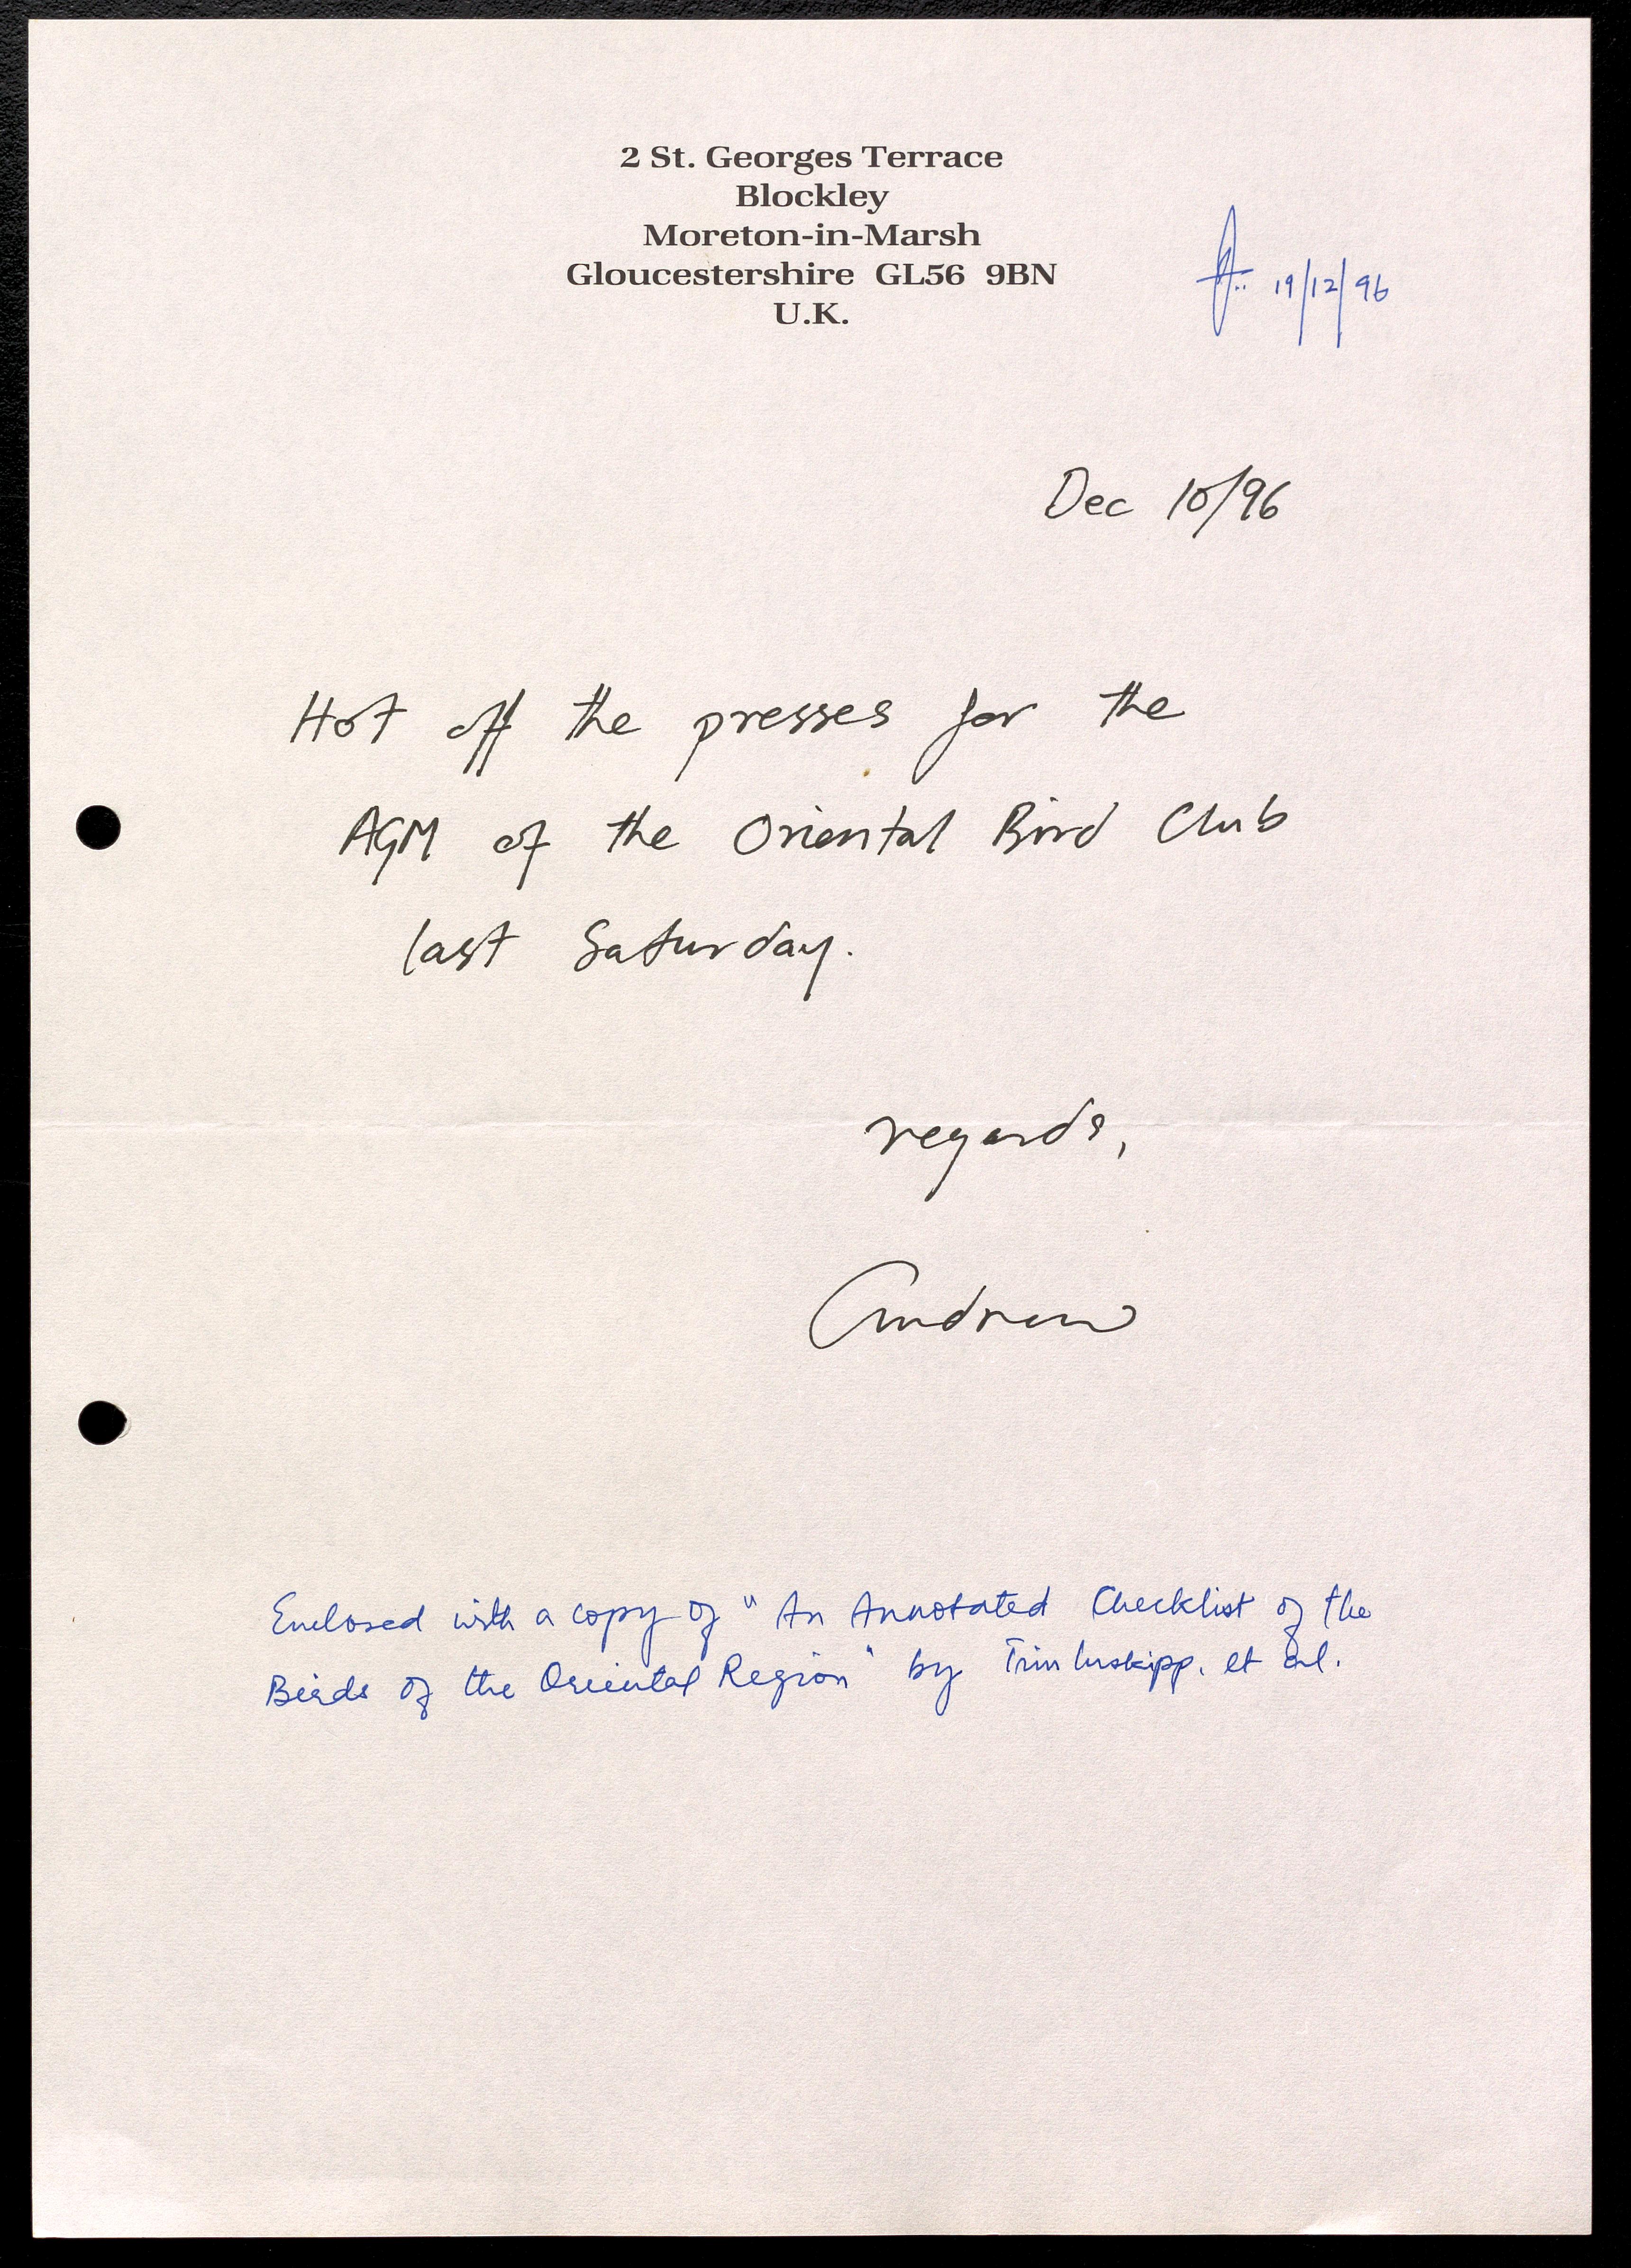 2 St. Georges Terrace
Blockley
Moreton-in-Marsh
Gloucestershire GL56 9BN
U.K.
19/12/96
Dec 10/96
Hot off the presses for the
AGM of the Oriental Bird Club
last Saturday.
regards,
Andrew
Enclosed with a copy of "An Annotated Checklist of the
Birds of the Oriental Region" by Tim Inskipp. et al.